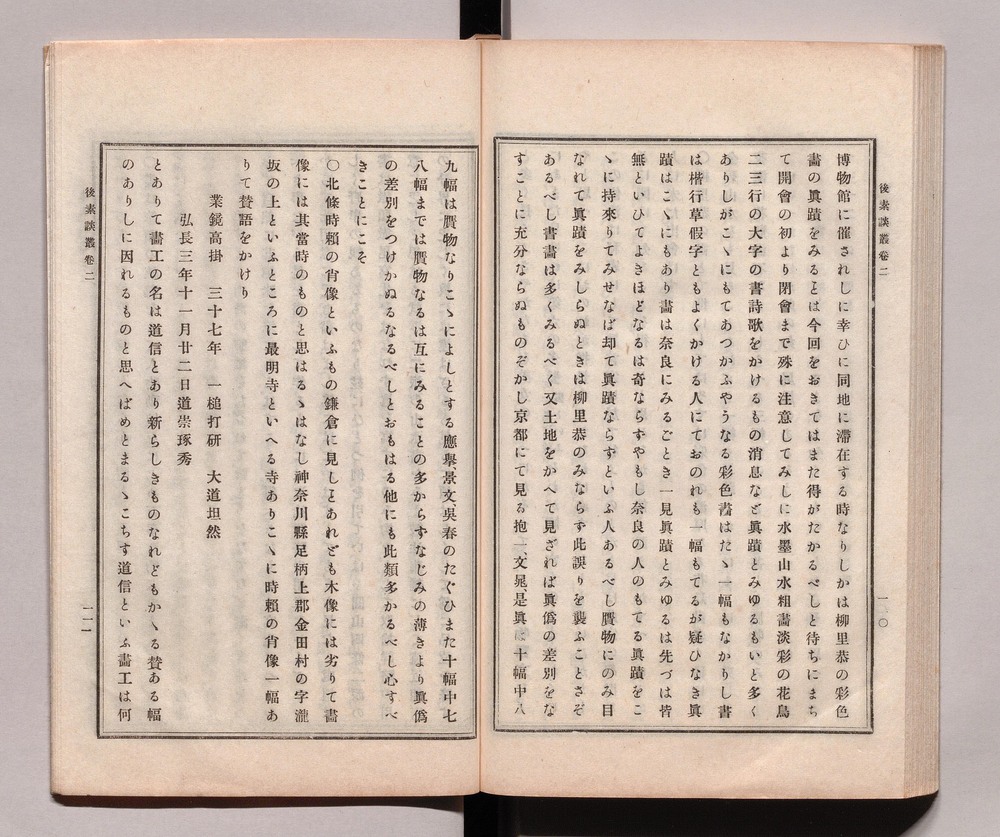 後素談叢卷二
一一〇
博物館に催されしに幸ひに同地に滯在する時なりしかは柳里恭の彩色
畵の眞蹟をみるとは今回をおきてはまた得がたかるべしと待ちにまち
て開會の初より閉會まで殊に注意してみしに水墨山水粗畵淡彩の花鳥
二三行の大字の書詩歌をかけるもの消息など眞蹟とみゆるもいと多く
ありしがこヽにもてあつかふやうなる彩色畵はたヽ一幅もなかりし書
は楷行草假字ともよくかける人にておのれも一幅もてるが疑ひなき眞
蹟はこヽにもあり畵は奈良にみるごとき一見眞蹟とみゆるは先づは皆
無といひてよきほどなるは奇ならすやもし奈良の人のもてる眞蹟をこ
ヽに持來りてみせなば却て眞蹟ならすといふ人あるべし贋物にのみ目
なれて眞蹟をみしらぬときは柳里恭のみならす此誤りを襲ふことさぞ
あるべし書畵は多くみるべく又土地をかへて見ざれば眞僞の差別をな
すことに充分ならぬものぞかし京都にて見る抱一、文晁是眞は十幅中八
九幅は贋物なりこヽによしとする應擧景文吳春のたぐひまた十幅中七
八幅までは贋物なるは互にみることの多からすなじみの薄きより眞僞
の差別をつけかぬるなるべしとおもはる他にも此類多かるべし心すべ
きことにこそ
〇北條時賴の肖像といふもの鎌倉に見しとあれども木像には劣りて畵
像には其當時のものと思はるヽはなし神奈川縣足柄上郡金田村の字瀧
坂の上といふところに最明寺といへる寺ありこヽに時賴の肖像一幅あ
りて賛語をかけり
業鏡高掛　三十七年　一槌打硏　大道坦然
弘長三年十一月廿二日道崇琢秀
とありて畵工の名は道信とあり新らしきものなれどもかヽる賛ある幅
のありしに因れるものと思へばめとまるヽこちす道信といふ畵工は何
後素談叢卷二
一一一